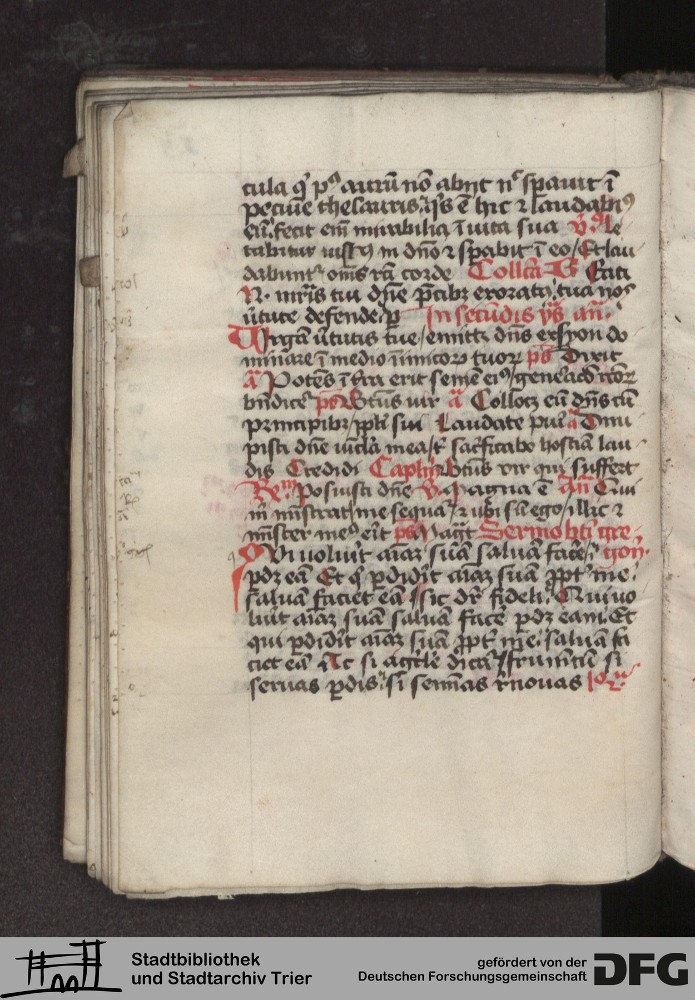 cula q̄ p⁹ aurū nō abijt nᶜ spauit ī
pecūe thesauris. q̇s ē hic ⁊ laudabi⁹
eū. fecit em̄ mirabilia ī uita sua v̄. le
tabitur iust⁹ in dn̄o ⁊ spabit ī eo / Et lau
dabunt᷑ om̄s rā corde Collcā B Beati
N. mr̄is tui dn̄e p̄cibꝫ exorat⁹. tua nos
v̄tute defende. p In secūdis vs̄ an̄.
Virgā v̄tutis tue / emittꝫ dn̄s ex syon do
minare ī medio īimicoꝝ tuoꝝ ps̄ Dixit
a Potēs ī tr̄a erit semē ei⁹ / gene
bn̄dicet᷑ ps̄ Btūs vir a Collocꝫ eū dn̄s cū
principibꝫ / ppl̄i sui Laudate pui a Diru
pisti dn̄e vincla mea / t᷑ sac̄ficabo hostiā lau
dis Credidi Capl̄m Btūs vir qui suffert
Re᷑m Posuisti dn̄e v̄. Magna ē an̄ Qui
m̄ mīstrat / me sequat᷑ ⁊ ubi sū ego / illic ⁊
mīster me⁹ eīt ps̄ Magt̄ Sermo bt̄i gre
Qui voluīt aīaꝫ suā saluā facē / gorij.
pdꝫ eā Et q̄ pdidīt aīaꝫ suā ppt᷑ me.
saluā faciet eā / sic dr̄ fideli. Qui uo
luīt aīaꝫ suā saluā facē pdꝫ eam. Et
qui pdidīt aīaꝫ suā ppt᷑ me. saluā fa
ciet eā Ac si ag̃cole dicat᷑ / frumtū si
seruas pdis. si semīas r̄nouas
Stadtbibliothek
und Stadtarchiv Trier
gefördert von der
Deutschen Forschungsgemeinschaft
DFG